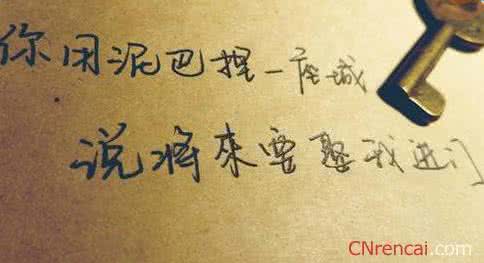 你用泥巴捏一座城
说将来要娶我进门
CNrencai.com